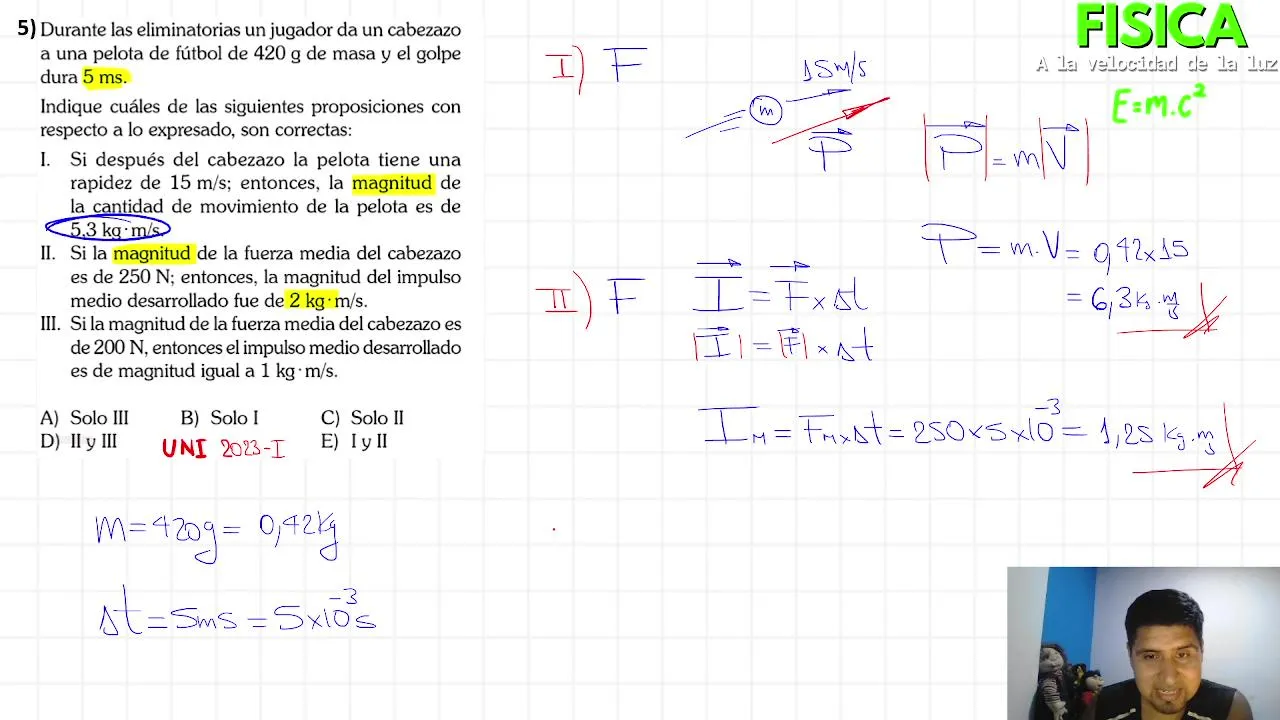 5) Durante las eliminatorias un jugador da un cabezazo
a una pelota de fútbol de 420 g de masa y el golpe
dura 5 ms.
Indique cuáles de las siguientes proposiciones con
respecto a lo expresado, son correctas:
I. Si después del cabezazo la pelota tiene una
rapidez de 15 m/s; entonces, la magnitud de
la cantidad de movimiento de la pelota es de
5,3 kg·m/s.
II. Si la magnitud de la fuerza media del cabezazo
es de 250 N; entonces, la magnitud del impulso
medio desarrollado fue de 2 kg·m/s.
III. Si la magnitud de la fuerza media del cabezazo es
de 200 N, entonces el impulso medio desarrollado
es de magnitud igual a 1 kg·m/s.
A) Solo III B) Solo I C) Solo II
D) II y III UNI 2023-I E) I y II
m = 420g = 0,42kg
Δt = 5ms = 5×10⁻³s
I) F
15m/s
m
P
|P| = m|V|
P = m.V = 0,42×15
= 6,3 kg.m/s
II) F
I = F × Δt
|I| = |F| × Δt
I_M = F_M × Δt = 250×5×10⁻³ = 1,25 kg.m/s
FISICA
A la velocidad de la luz
E=m.c²